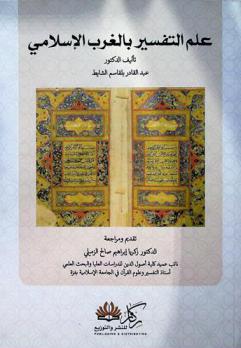 علم التفسير بالغرب الإسلامي
تأليف الدكتور
عبد القادر بلقاسم الشايط
تقديم ومراجعة
الدكتور زكريا إبراهيم صالح الزميلي
نائب عميد كلية أصول الدين للدراسات العليا والبحث العلمي
أستاذ التفسير وعلوم القرآن في الجامعة الإسلامية بغزة
ركاز
للنشر والتوزيع
PUBLISHING & DISTRIBUTING